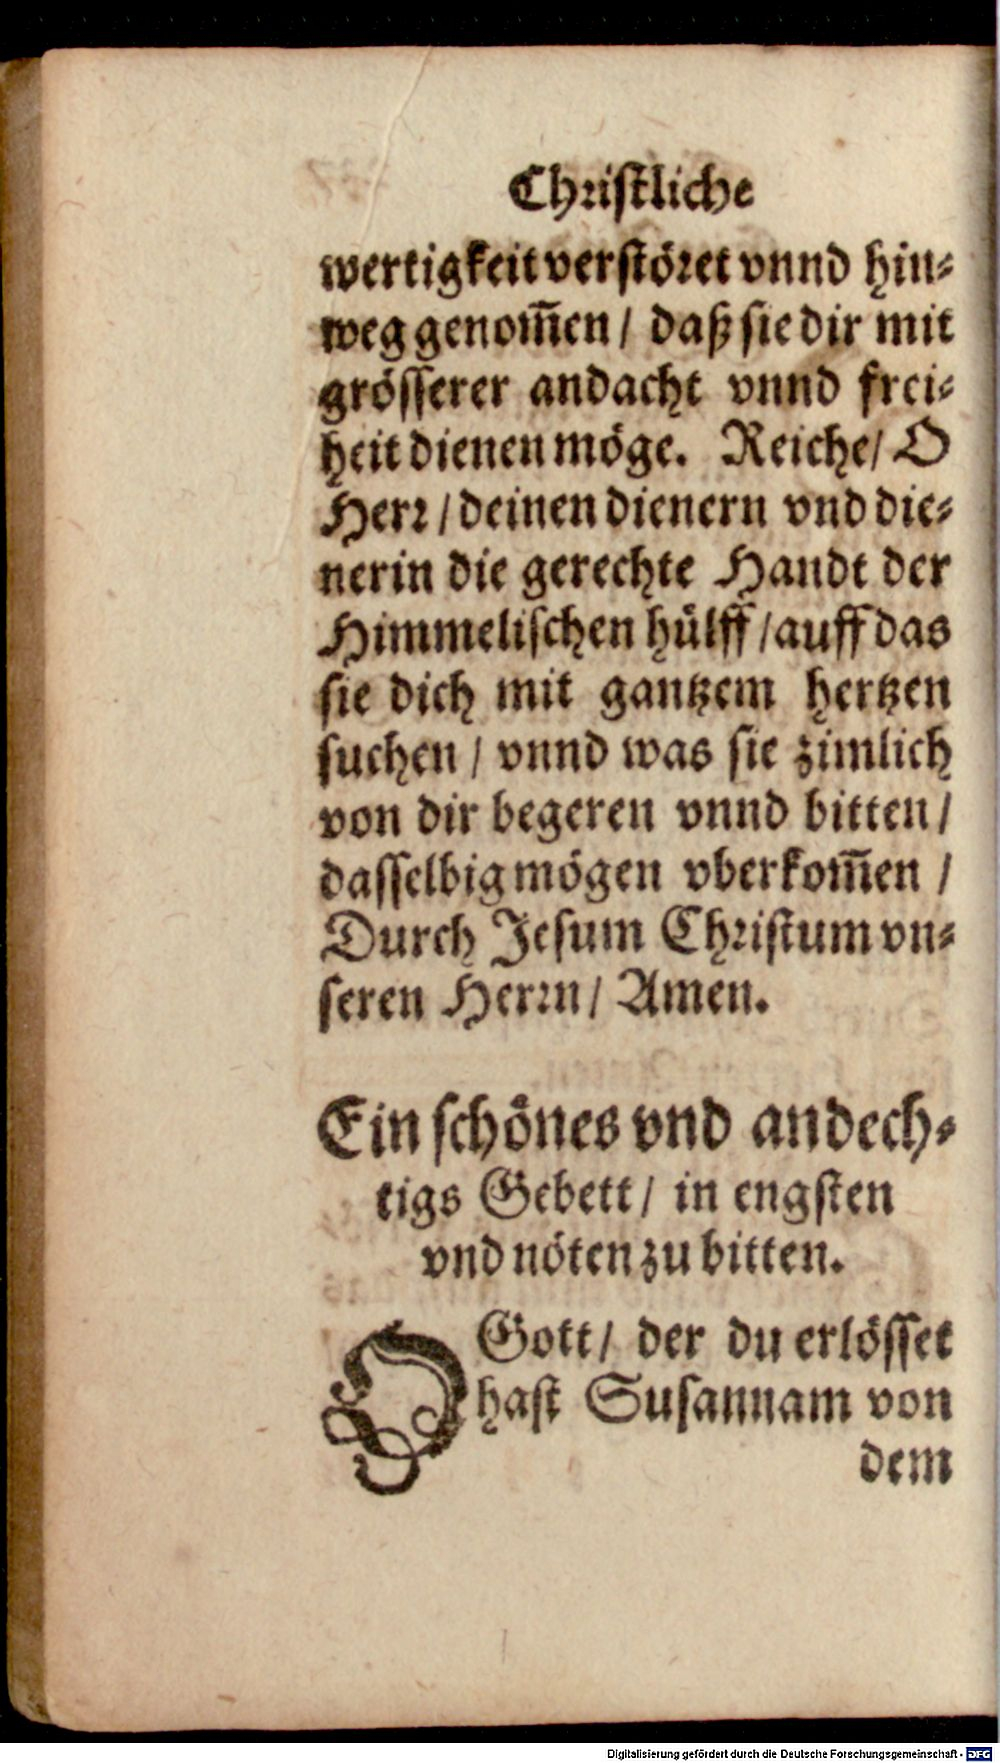 Christliche
wertigkeit verstöret vnnd hin⸗
weg genom̃en / daß sie dir mit
grösserer andacht vnnd frei⸗
heit dienen möge. Reiche / O
Herr / deinen dienern vnd die⸗
nerin die gerechte Handt der
Himmelischen hülff / auff das
sie dich mit gantzem hertzen
suchen / vnnd was sie zimlich
von dir begeren vnnd bitten /
dasselbig mögen vberkom̃en /
Durch Jesum Christum vn⸗
seren Herrn / Amen.
Ein schönes vnd andech⸗
tigs Gebett / in engsten
vnd nöten zu bitten.
O Gott / der du erlösset
hast Susannam von
dem
Digitalisierung gefördert durch die Deutsche Forschungsgemeinschaft - DFG